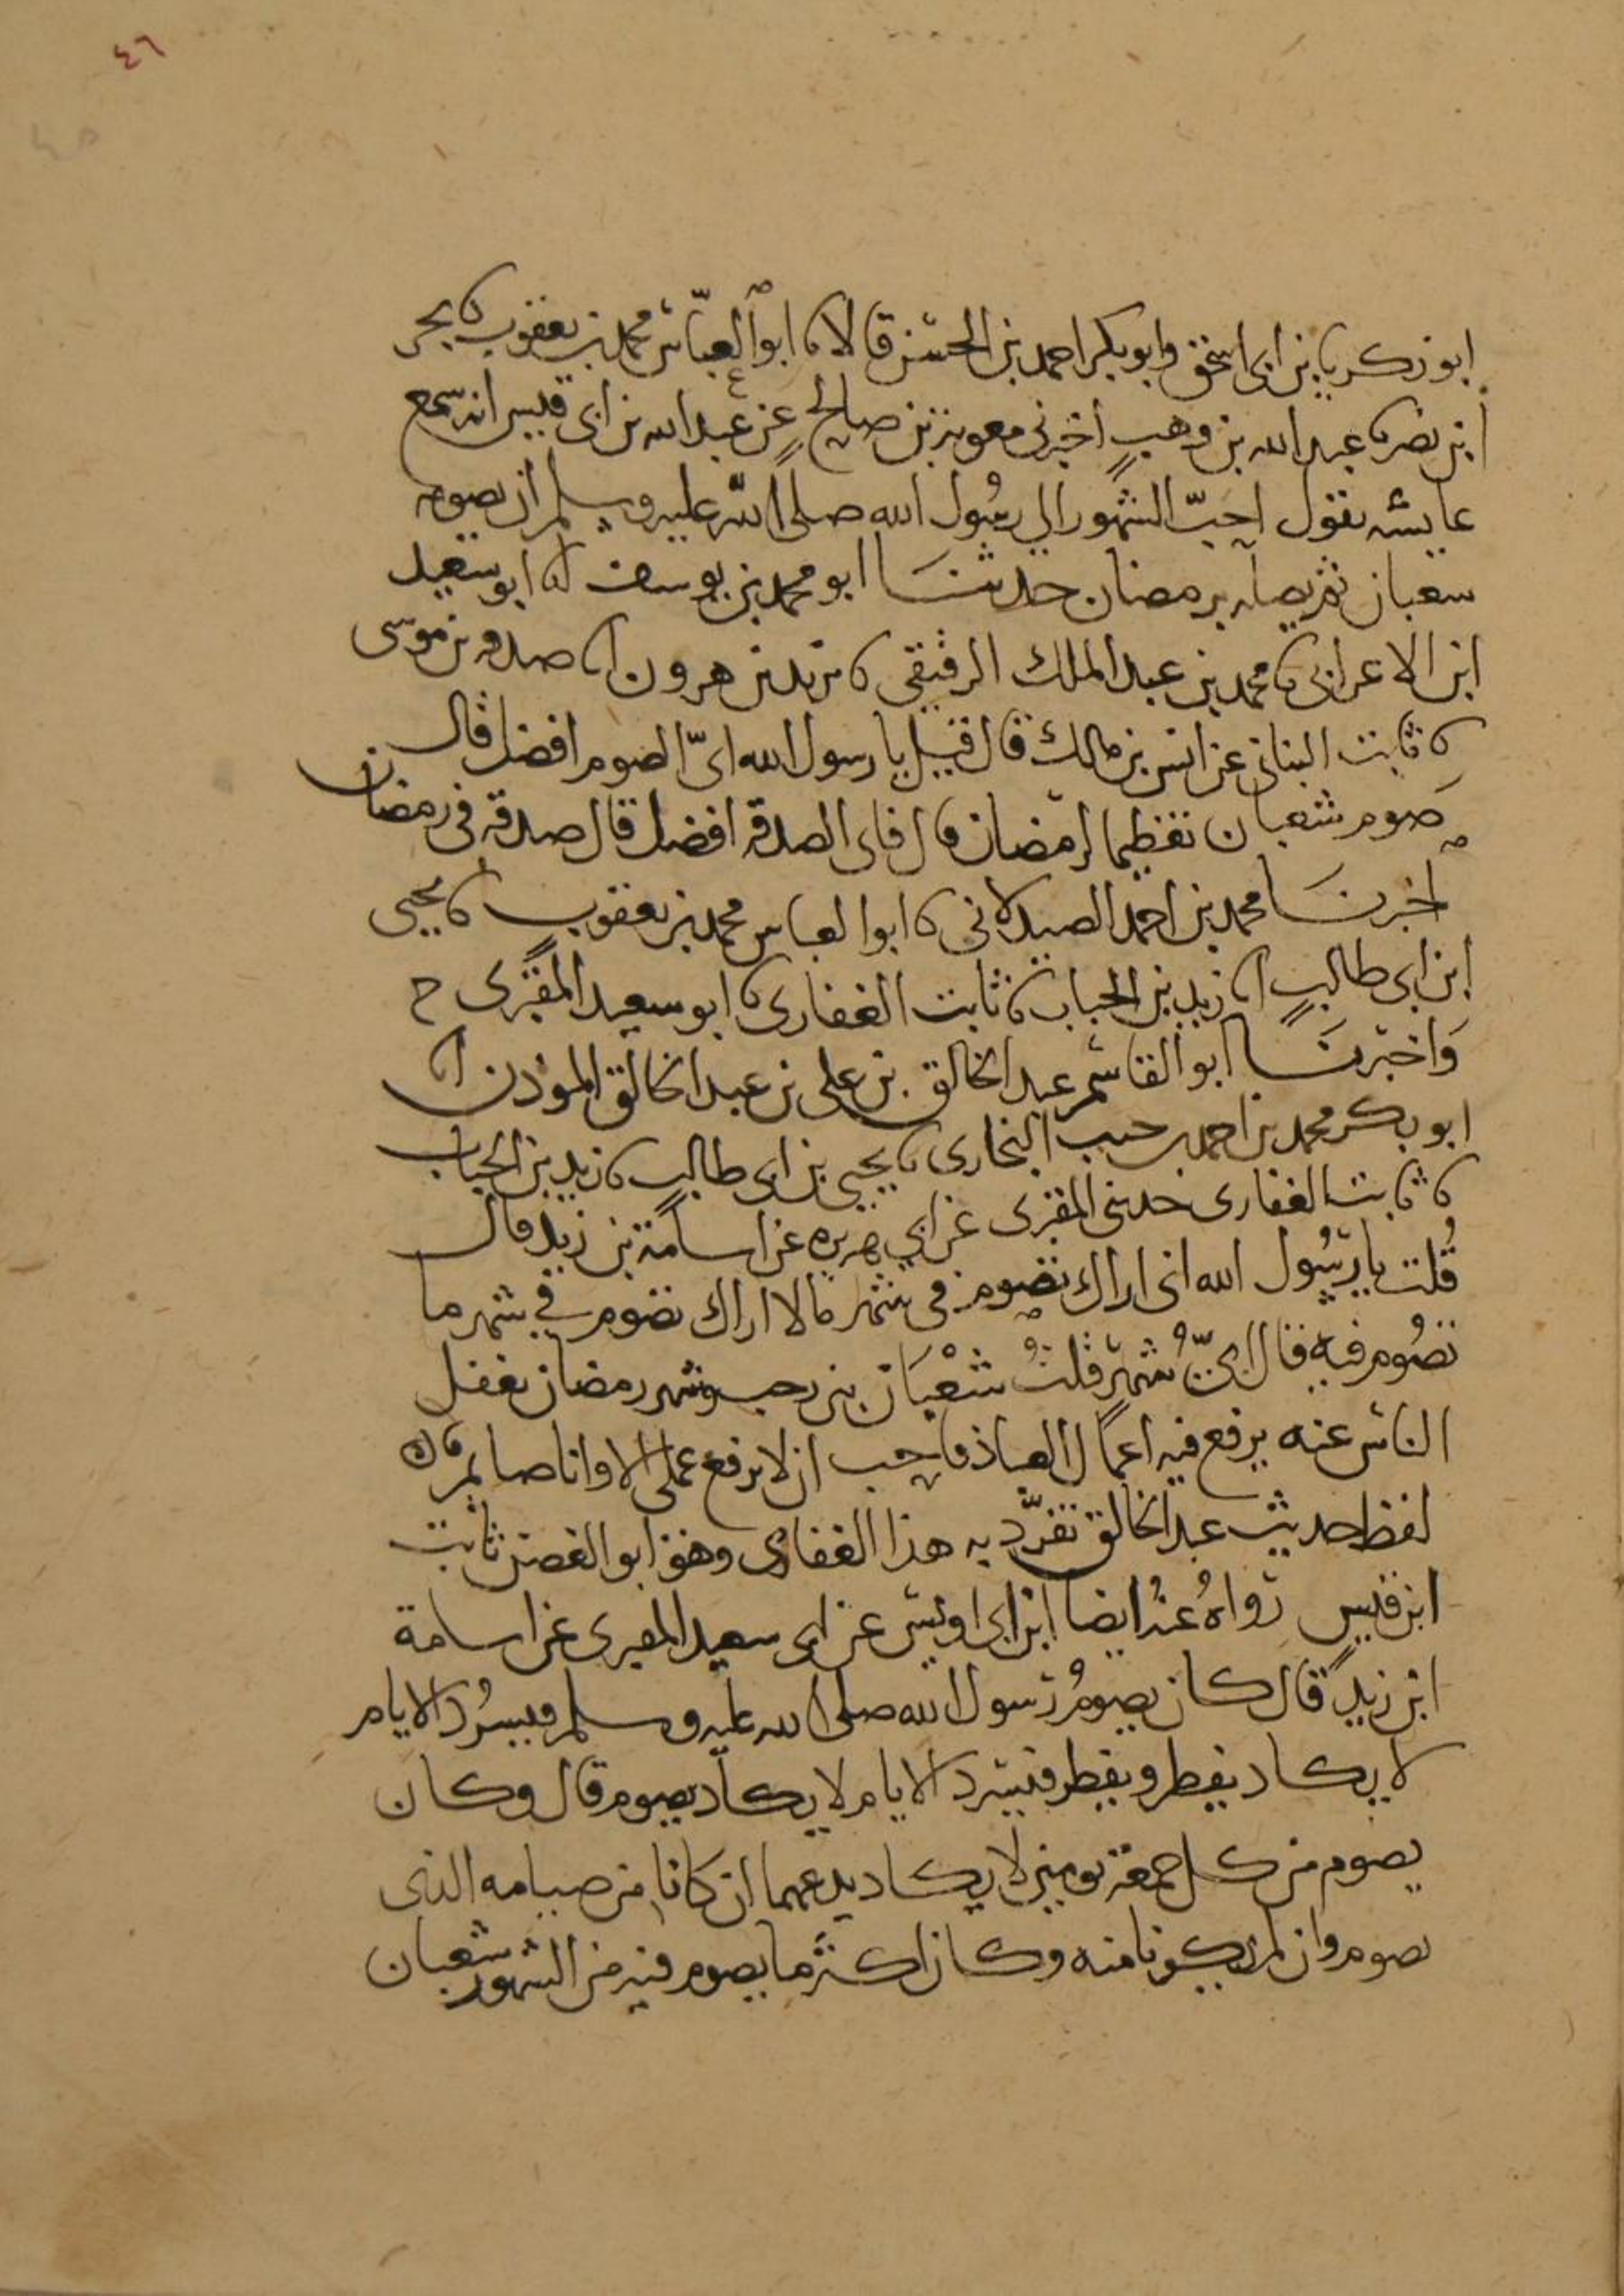 ٤٦
ابو زكريا بن ابى اسحق وابو بكر احمد بن الحسن قالا نا ابو العباس محمد بن يعقوب نا بحر
ابن نصر نا عبد الله بن وهب اخبرنى معوية بن صالح عن عبد الله بن ابى قيس انه سمع
عايشه تقول احب الشهور الى رسول الله صلى الله عليه وسلم ان يصومه
شعبان ثم يصله برمضان حدثنا ابو محمد بن يوسف انا ابو سعيد
ابن الاعرابى نا محمد بن عبد الملك الدقيقى نا يزيد بن هرون انا صدقه بن موسى
نا ثابت البنانى عن انس بن مالك قال قيل يا رسول الله اىّ الصوم افضل قال
صوم شعبان تعظيما لرمضان قال فاى الصدقة افضل قال صدقة فى رمضان
اخبرنا محمد بن احمد الصيدلانى نا ابو العباس محمد بن يعقوب نا يحيى
ابن ابى طالب انا زيد بن الحباب نا ثابت الغفارى نا ابو سعيد المقبرى ح
وَاخبرنَا ابو القاسم عبد الخالق بن على بن عبد الخالق الموذن انا
ابو بكر محمد بن احمد بن حبب البخارى نا يحيى بن ابى طالب نا زيد بن الحباب
نا ثابت الغفارى حدثنى المقبرى عن ابى هريره عن اسامة بن زيد قال
قُلت يا رسُول الله انى اراك تصوم فى شهر ما لا اراك تصوم فى شهر ما
تصُوم فيه قال اىّ شهر قلتُ شعْبَان بين رجب وشهر رمضان يغفل
الناس عنه يرفع فيه اعمال العباد فاحب ان لا يرفع عملى الا وانا صايم قال
لفظ حديث عبد الخالق تفرّد به هذا الغفارى وهو ابو الغصن ثابت
ابن قيس رواهُ عنه ايضا ابن ابى اويس عن ابى سعيد المقبرى عن اسامة
ابن زيد قال كان يصومُ رسول الله صلى الله عليه وسلم فيسرُد الايام
لا يكاد يفطر ويفطر فيسرد الايام لا يكاد يصوم قال وكان
يصوم من كل جمعة يومين لا يكاد يدعهما ان كانا من صيامه الذى
يصوم وان لم يكونا منه وكان اكثر ما يصوم فيه من الشهور شعبان